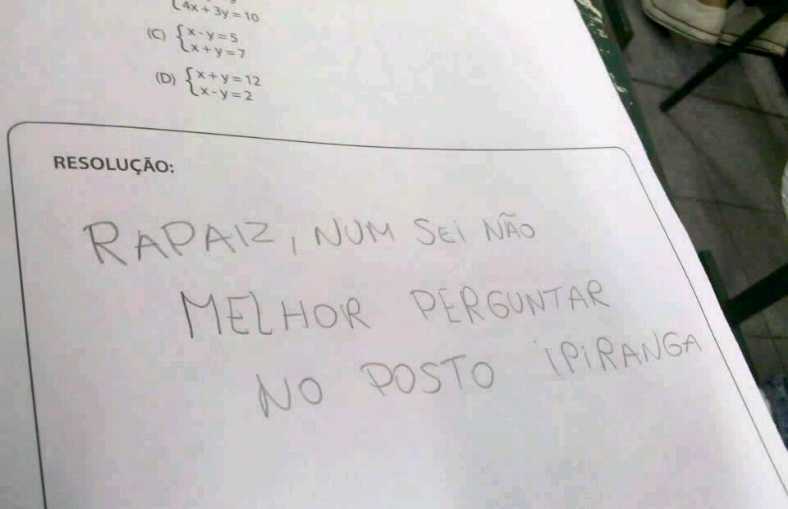 4x + 3y = 10
(C) { x - y = 5
x + y = 7
(D) { x + y = 12
x - y = 2
RESOLUÇÃO:
RAPAIZ, NUM SEI NÃO
MELHOR PERGUNTAR
NO POSTO IPIRANGA